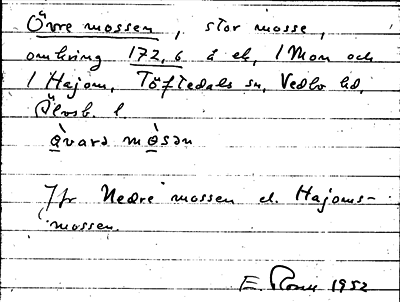 Övre mossen, stor mosse,
omkring 172,6 å ek, 1 Mon och
1 Hajom, Töftedals sn, Vedbo hd,
Älvsb. l.
å̀vara mò̲sən
Jfr Nedre mossen el. Hajoms-
mossen.
E. 1952